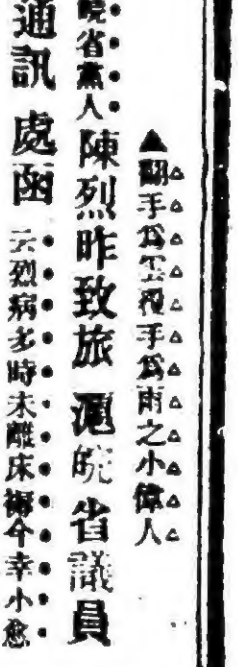 ▲翻手為雲覆手為雨之小偉人
皖省黨人陳烈昨致旅滬皖省議員
通訊處函云烈病多時未離床褥今幸小愈